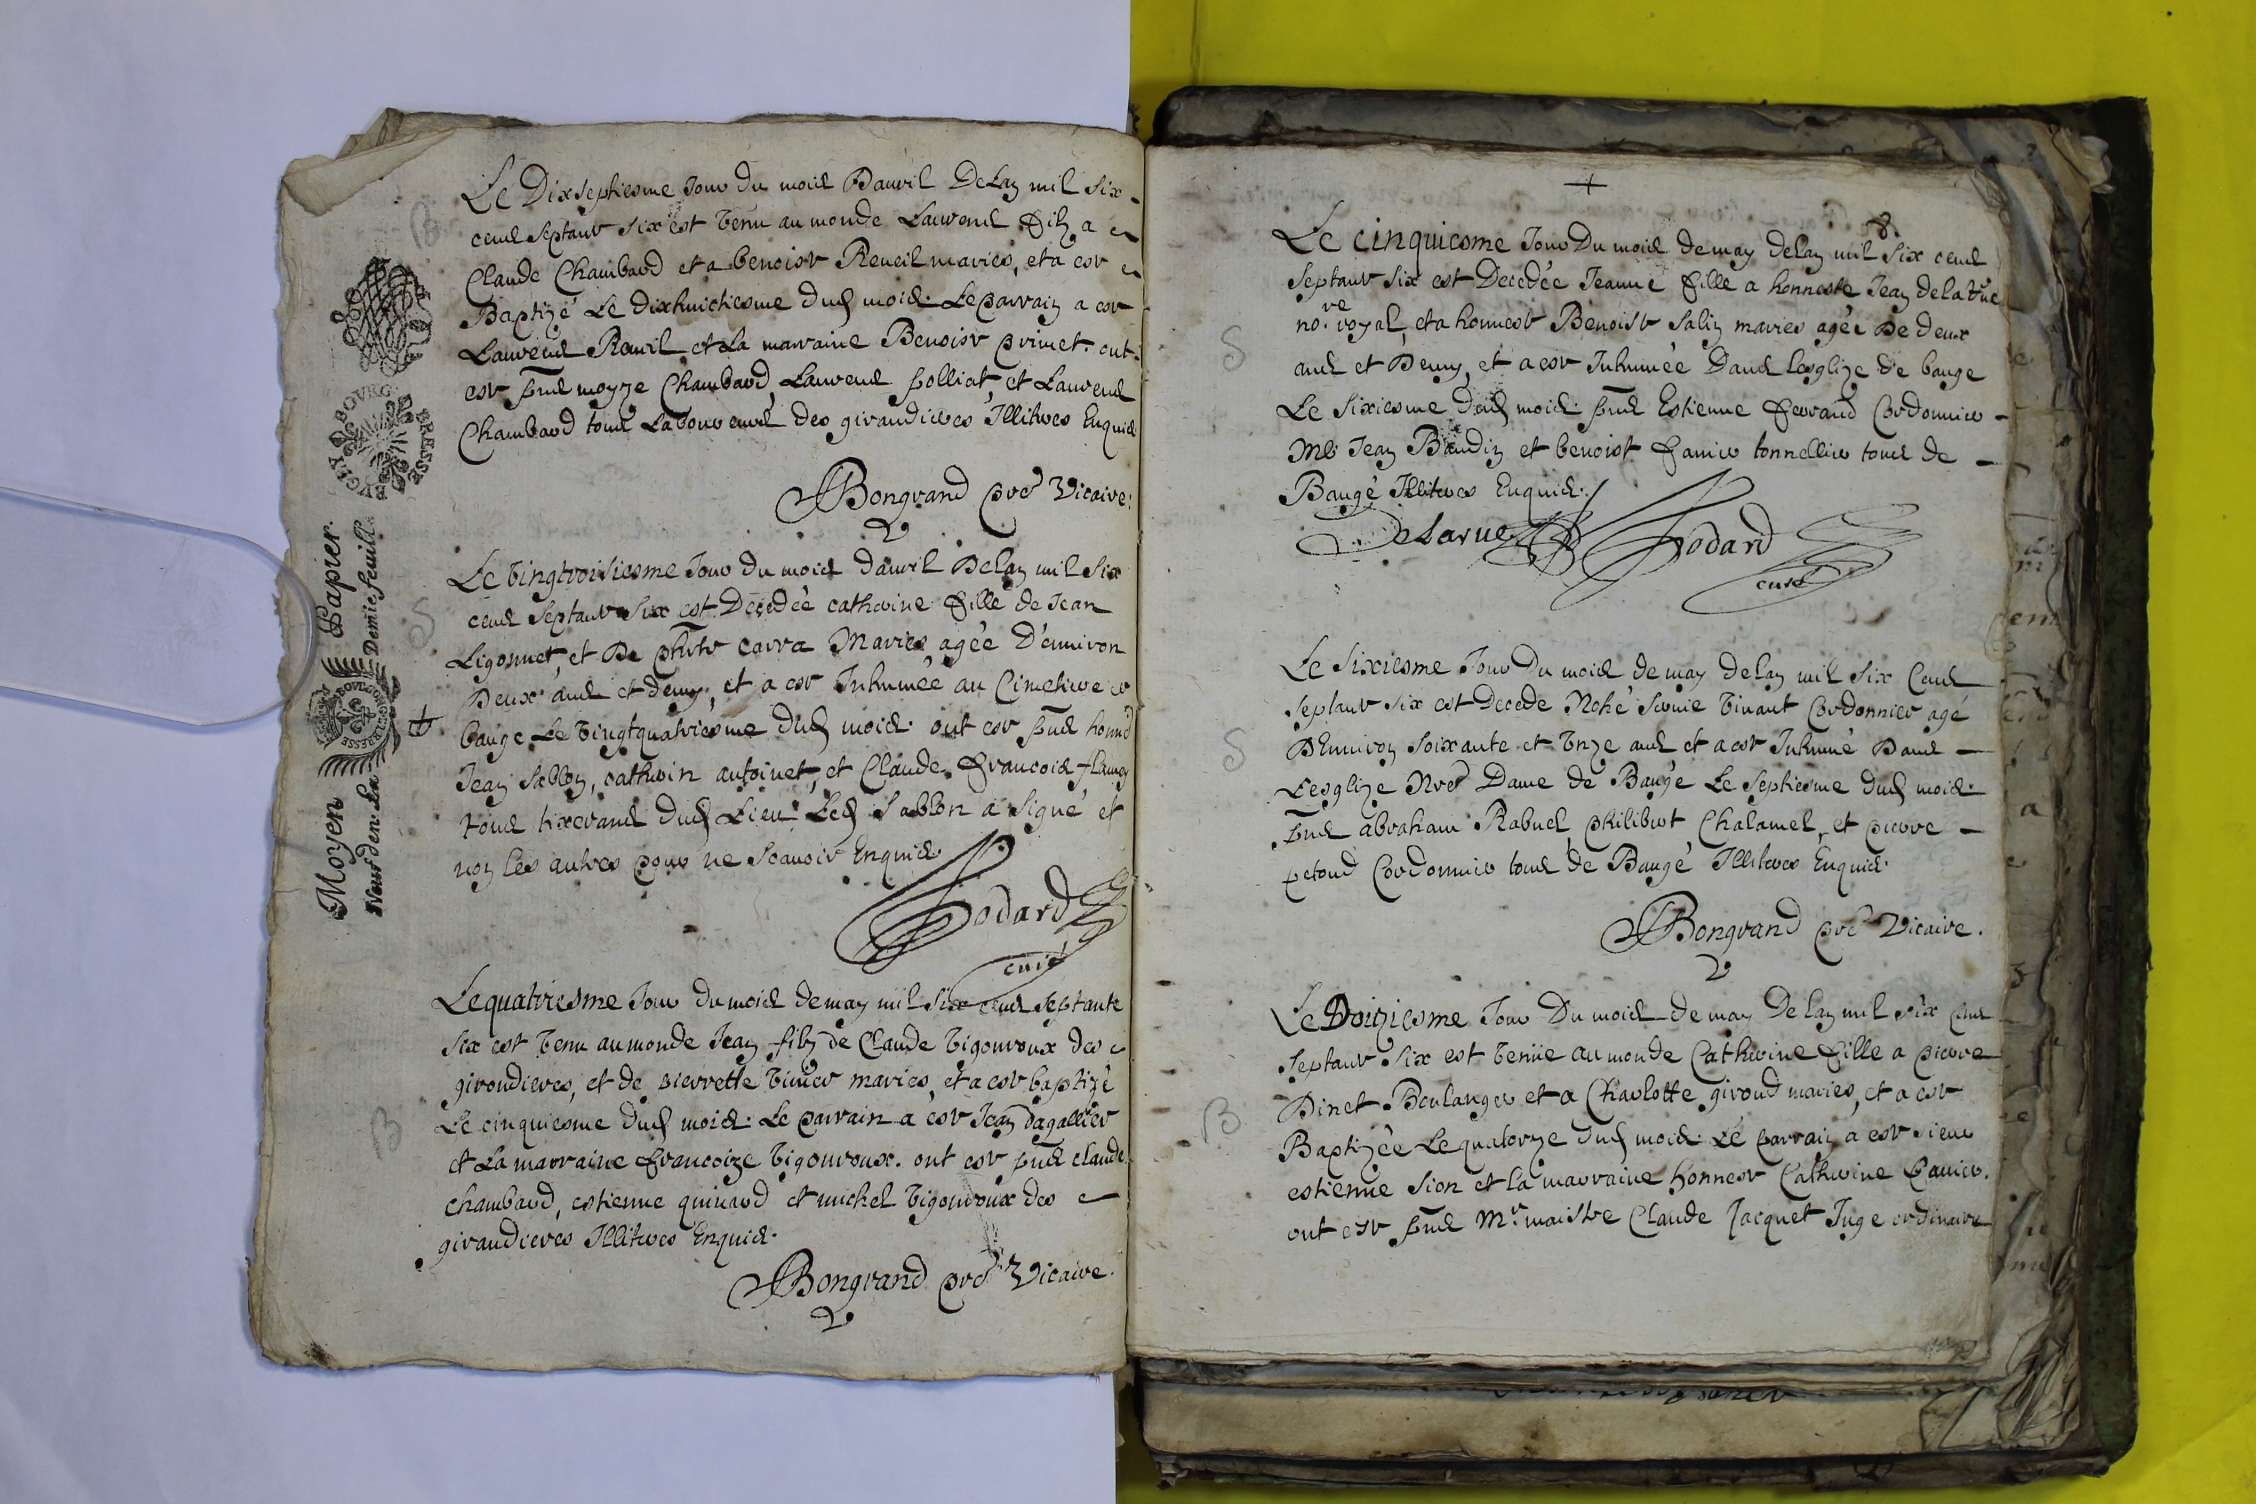 Le Dixseptiesme Jour du mois Dauril De Lan mil six
cens septant six est venu au monde Laurens filz a
Claude Chambard et a benoist Reueil maries, et a est
Baptizé Le dixhuictiesme dud mois. Le parrain a est
Laurens Reueil et La marraine Benoist primet. ont
est pñs moyze Chambard, Laurens polliat, et Laurens
Chambard tous Laboureurs des girandieres Illitres Enquis
Bongrand pre Vicaire.
Le vingtroisiesme Jour du mois dauril De lan mil six
cens septant six est Decedée catherine fille de Jean
Ligonnet, et De phte carra Maries agée D'enuiron
Deux ans et demy, et a est Inhumée au Cimetiere
bauge Le vingtquatriesme dud mois. ont est pñs honn
Jean Sablon, cathrin antoinet, et Claude francois flamey
tous tixerans dud Lieu. Led Sablon a signé et
non les autres pour ne scauoir Enquis
Hodard
curé
Le quatriesme Jour du mois de may mil six cens septante
six est venu au monde Jean filz de Claude Vigouroux des
girondieres, et de pierrette maries, et a est baptizé
Le cinquiesme dud mois. Le parrain a est Jean dagallier
et La marraine francoize Vigouroux. ont est pñs claude
chambard, estienne guinard et michel Vigouroux des
girandieres Illitres Enquis.
Bongrand pre Vicaire.
Moyen Papier.
Neuf den. La Demie feuille
BOVRG BRESSE BVGEY
8.
Le cinquiesme Jour Du mois de may de lan mil six cens
septant six est Decedée Jeanne fille a honneste Jean de la Rue
no.re royal, et a honnest Benoist Salin maries agée De deux
ans et Demy, et a est Inhumée Dans Lesglize de bauge
Le sixiesme dud mois. pñs Estienne ferrand Cordonnier
Me Jean Baudin et benoist Janin tonnellier tous de
Baugé Illitres Enquis.
DeLarue
Hodard
curé
Le sixiesme Jour Du mois de may de lan mil six Cens
septant six est Decede Viuant Cordonnier agé
D'Enuiron soixante et unze ans et a est Inhumé Dans
L'esglize Nre Dame de Baugé Le septiesme dud mois.
pñs abraham Rabuel, philibert Chalamel, et pierre
petond Cordonnier tous de Baugé Illitres Enquis.
Bongrand pre Vicaire.
Le Doiziesme Jour Du mois de may De lan mil six cens
septant six est venüe au monde Catherine fille a pierre
Dinet Boulanger et a Charlotte giroud maries, et a est
Baptizée Le quatorze dud mois. Le parrain a est sieur
estienne Sion et la marraine honnest Catherine
ont est pñs Mr. maistre Claude Jacquet Juge ordinaire